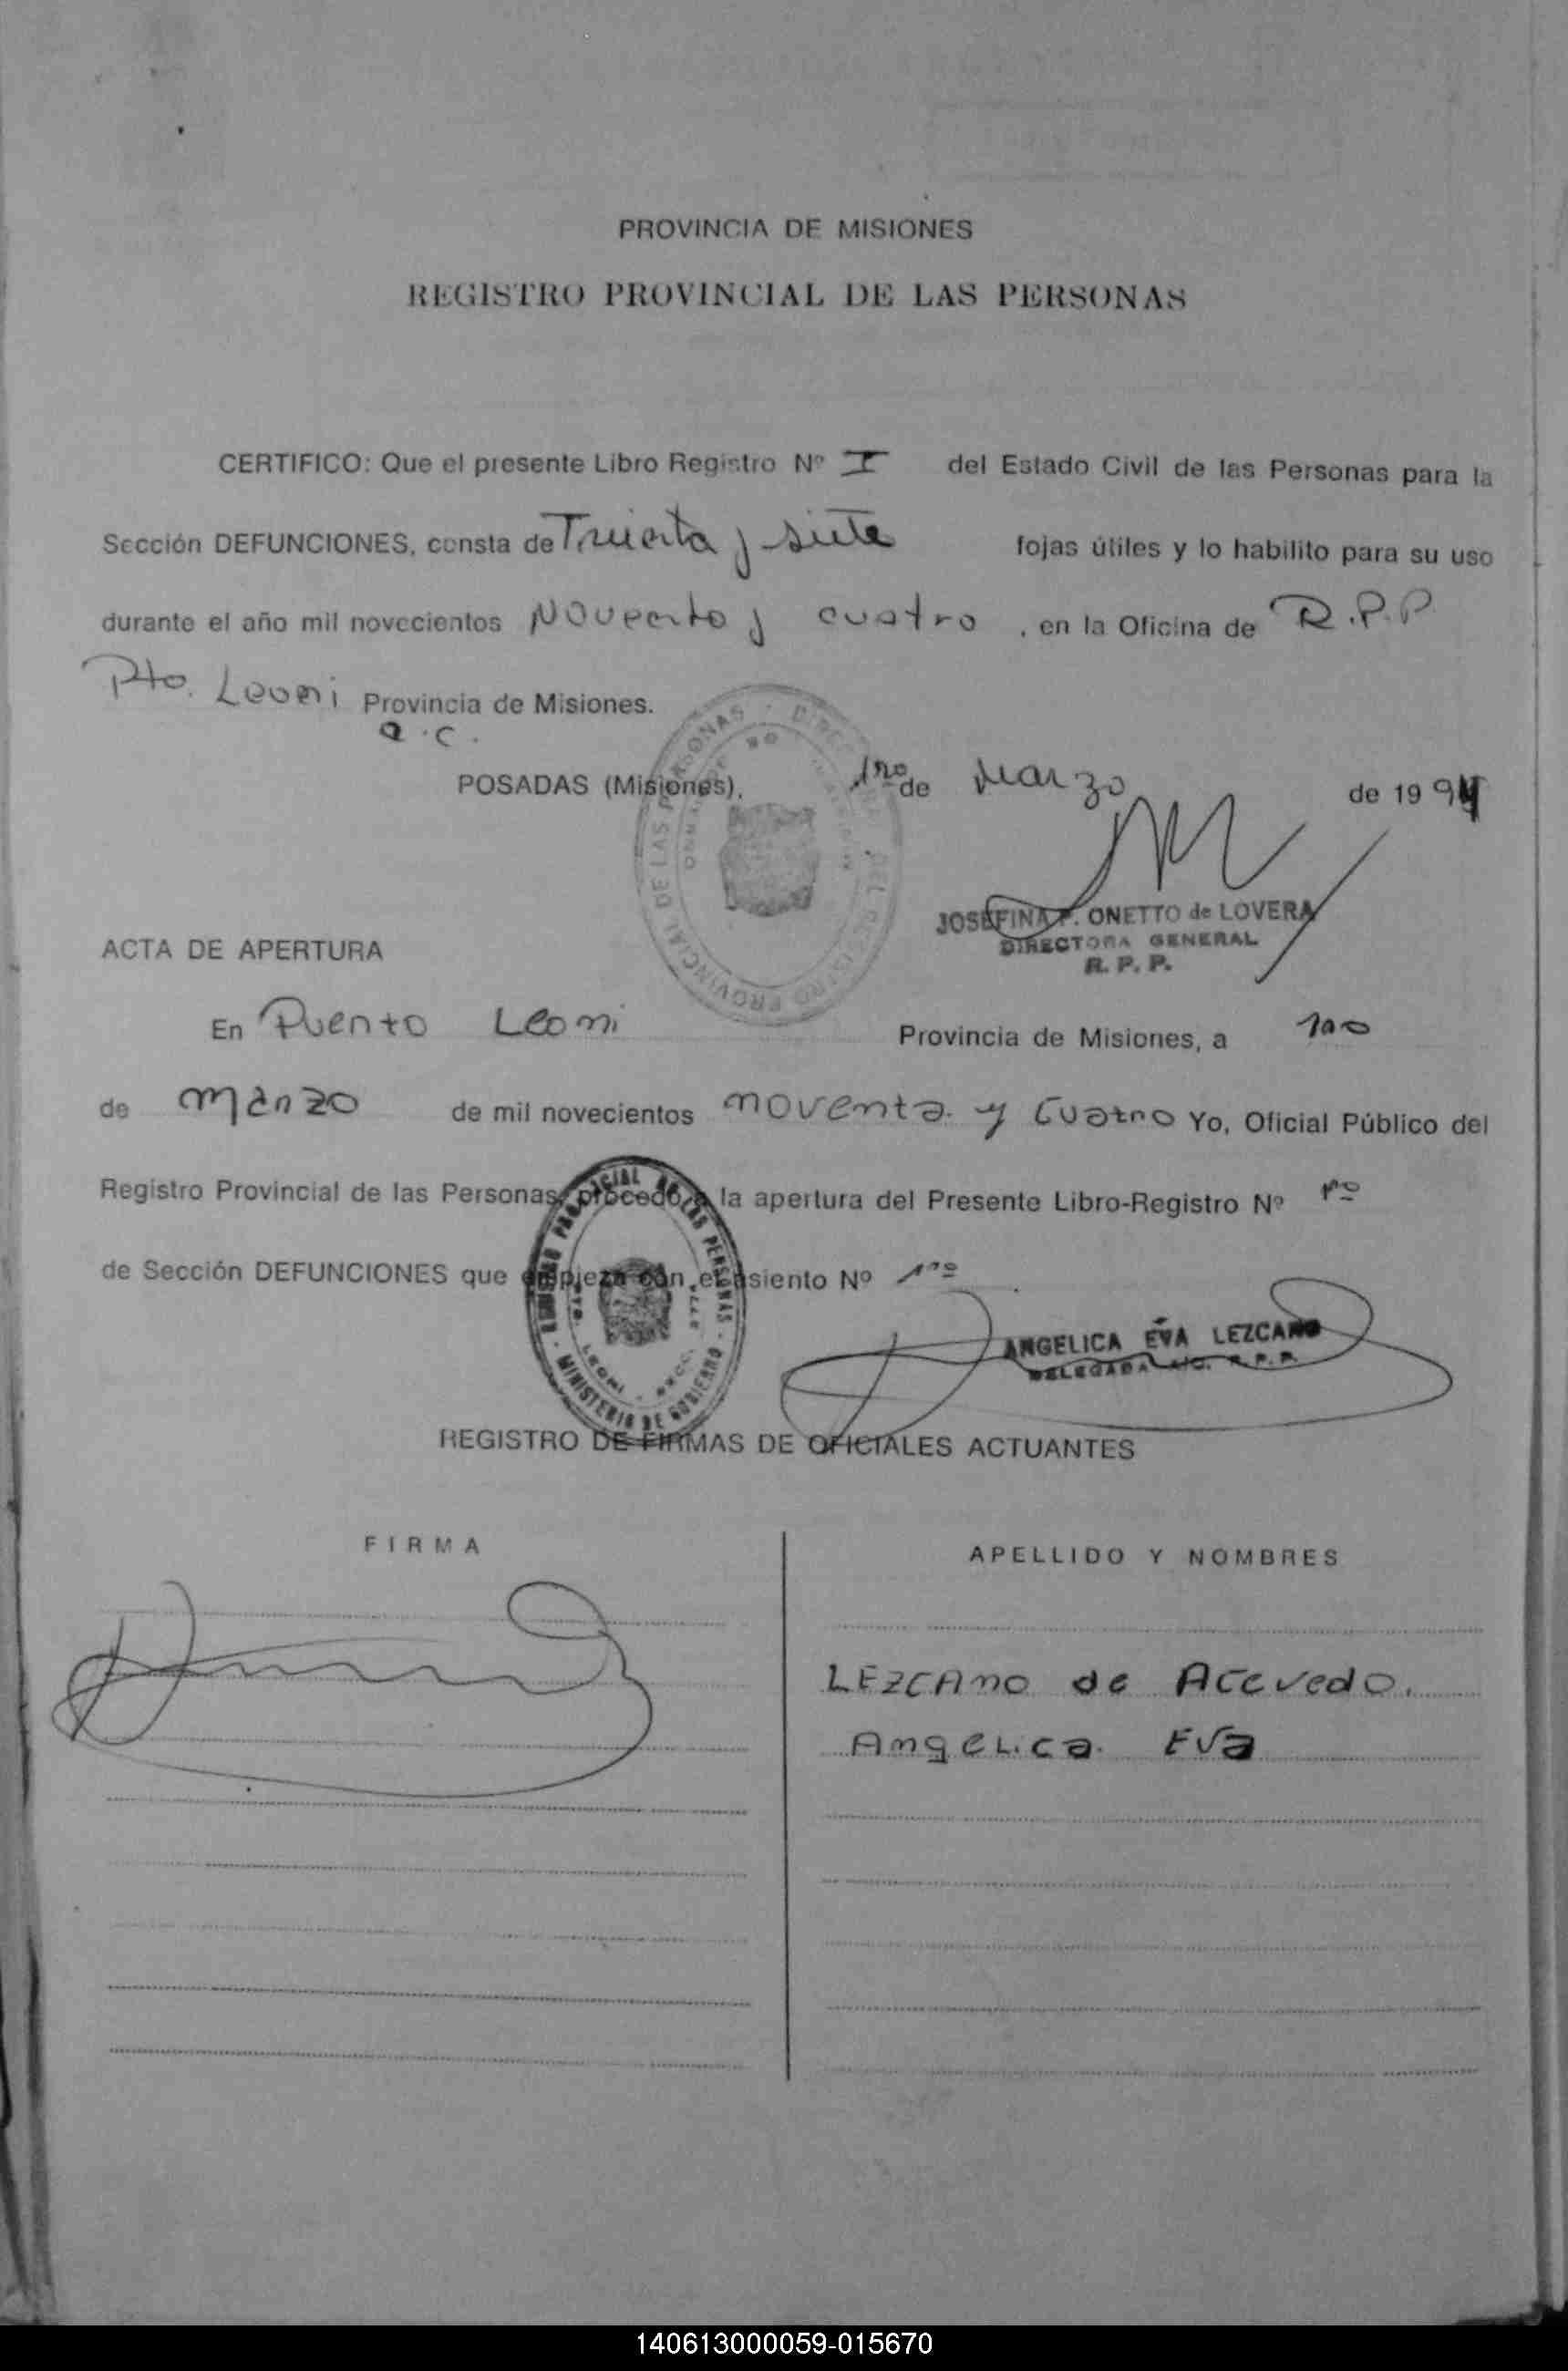 PROVINCIA DE MISIONES
REGISTRO PROVINCIAL DE LAS PERSONAS
CERTIFICO: Que el presente Libro Registro Nº I del Estado Civil de las Personas para la
Sección DEFUNCIONES, consta de Treinta y siete fojas útiles y lo habilito para su uso
durante el año mil novecientos Noventa y cuatro, en la Oficina de R.P.P
Pto. Leoni Provincia de Misiones.
a.c.
POSADAS (Misiones), 1ro de Marzo de 1994
JOSEFINA P. ONETTO de LOVERA
DIRECTORA GENERAL
R. P. P.
ACTA DE APERTURA
En Puerto Leoni Provincia de Misiones, a 1ro
de Marzo de mil novecientos noventa y Cuatro Yo, Oficial Público del
Registro Provincial de las Personas, procedo a la apertura del Presente Libro-Registro Nº 1º
de Sección DEFUNCIONES que empieza con el asiento Nº 1ro
ANGELICA EVA LEZCANO
DELEGADA R.P.P.
REGISTRO DE FIRMAS DE OFICIALES ACTUANTES
FIRMA
APELLIDO Y NOMBRES
LEZCAno de Acevedo.
AngeLica Eva
140613000059-015670